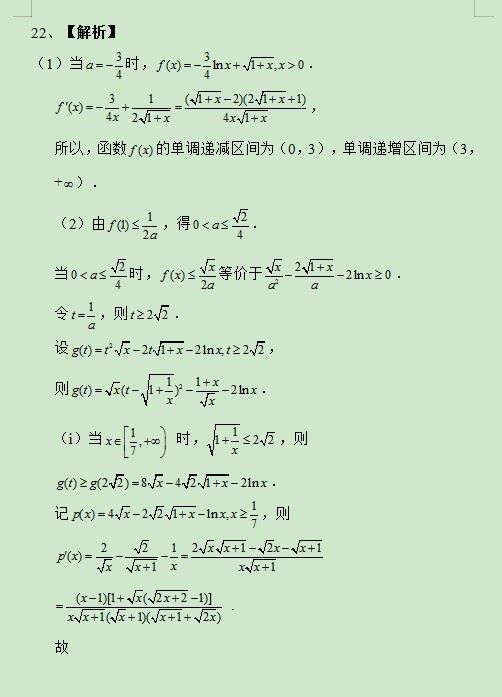 22、【解析】
（1）当 a=-3/4 时，f(x)=-3/4 ln x+√(1+x), x>0．
f'(x)=-3/(4x)+1/(2√(1+x))=(√(1+x)-2)(2√(1+x)+1)/(4x√(1+x))，
所以，函数 f(x) 的单调递减区间为（0，3），单调递增区间为（3，
+∞）．
（2）由 f(1)≤1/(2a)，得 0<a≤√2/4．
当 0<a≤√2/4 时，f(x)≤√x/(2a) 等价于 √x/a²-2√(1+x)/a-2ln x≥0．
令 t=1/a，则 t≥2√2．
设 g(t)=t²√x-2t√(1+x)-2ln x, t≥2√2，
则 g(t)=√x(t-√(1+1/x))²-(1+x)/√x-2ln x．
（i）当 x∈[1/7,+∞) 时，√(1+1/x)≤2√2，则
g(t)≥g(2√2)=8√x-4√2√(1+x)-2ln x．
记 p(x)=4√x-2√2√(1+x)-ln x, x≥1/7，则
p'(x)=2/√x-√2/√(x+1)-1/x=(2√x√(x+1)-√2x-√(x+1))/(x√(x+1))
=(x-1)[1+√x(√(2x+2)-1)]/(x√(x+1)(√x+1)(√(x+1)+√(2x)))．
故